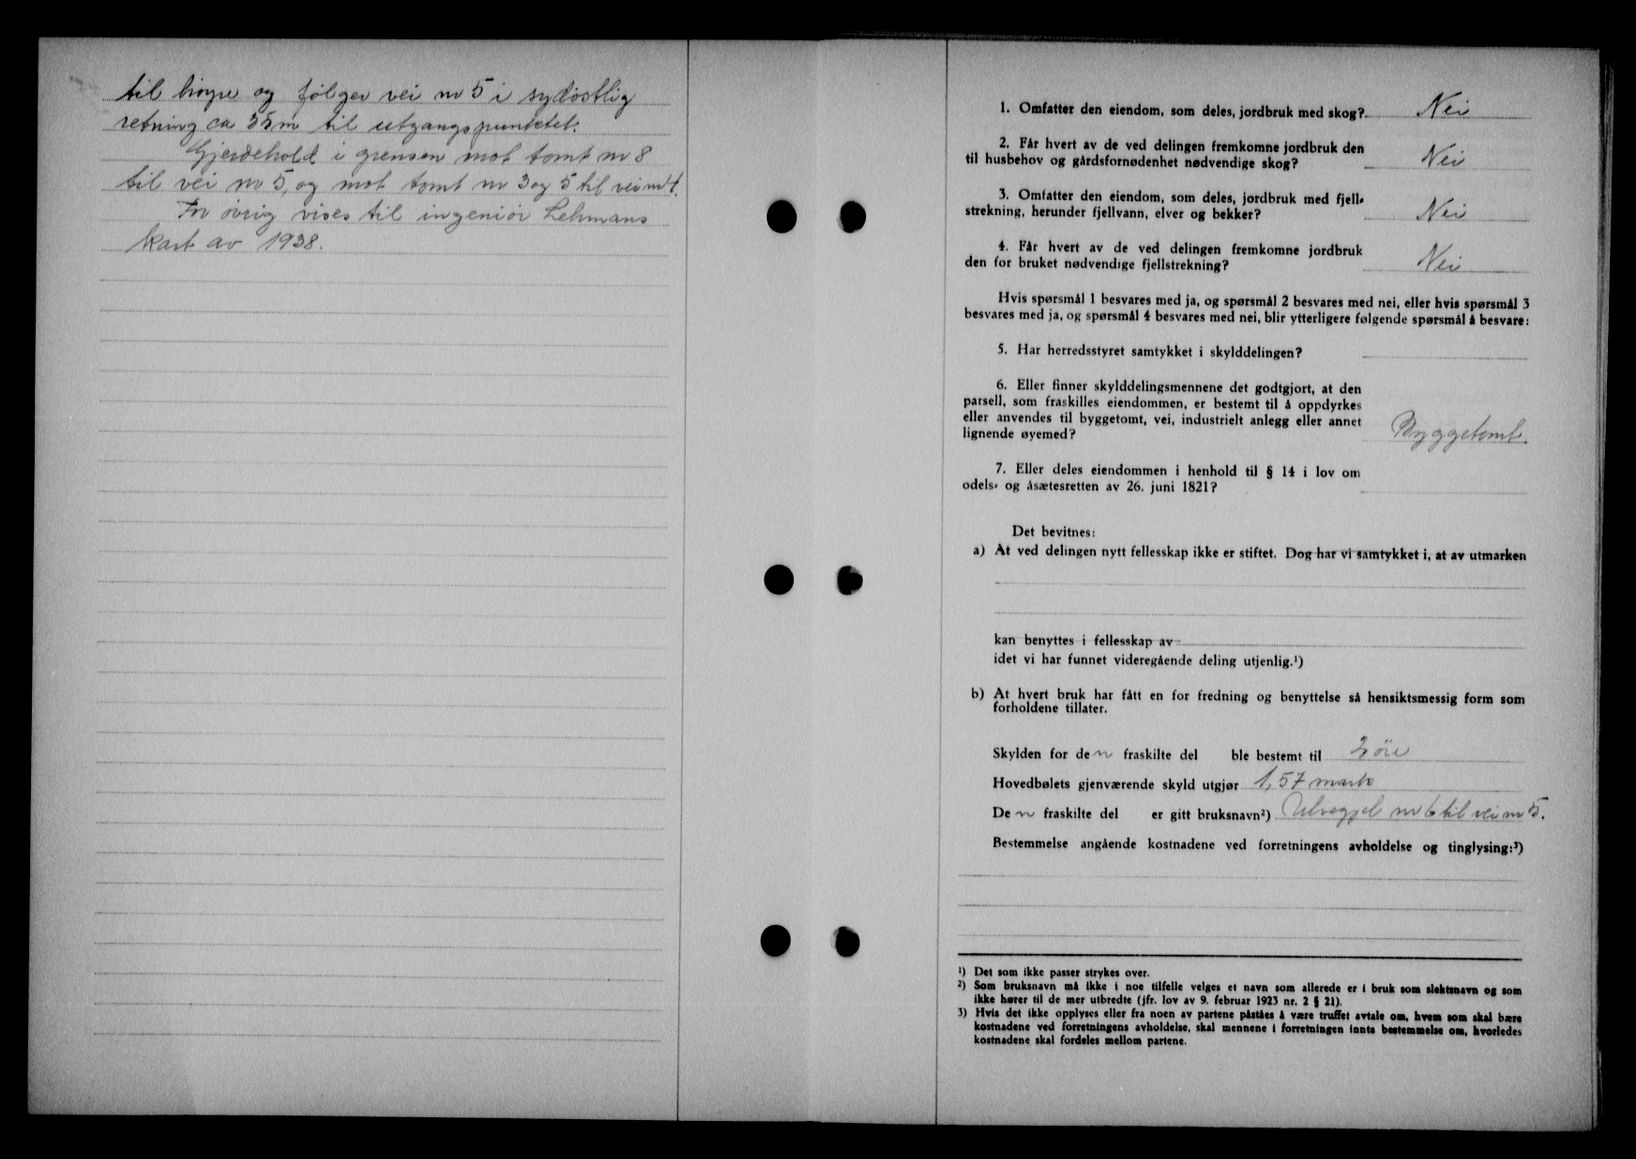 til høyre og følger vei nr 5 i sydøstlig
retning ca 35 m til utgangspunktet.
Gjerdehold i grensen mot tomt nr 8
til vei nr 5, og mot tomt nr 3 og 5 til vei nr 4.
For øvrig vises til ingeniør Lehmans
kart av 1938.
1. Omfatter den eiendom, som deles, jordbruk med skog? Nei
2. Får hvert av de ved delingen fremkomne jordbruk den
til husbehov og gårdsfornødenhet nødvendige skog? Nei
3. Omfatter den eiendom, som deles, jordbruk med fjell-
strekning, herunder fjellvann, elver og bekker? Nei
4. Får hvert av de ved delingen fremkomne jordbruk
den for bruket nødvendige fjellstrekning? Nei
Hvis spørsmål 1 besvares med ja, og spørsmål 2 besvares med nei, eller hvis spørsmål 3
besvares med ja, og spørsmål 4 besvares med nei, blir ytterligere følgende spørsmål å besvare:
5. Har herredsstyret samtykket i skylddelingen?
6. Eller finner skylddelingsmennene det godtgjort, at den
parsell, som fraskilles eiendommen, er bestemt til å oppdyrkes
eller anvendes til byggetomt, vei, industrielt anlegg eller annet
lignende øyemed? Byggetomt.
7. Eller deles eiendommen i henhold til § 14 i lov om
odels- og åsætesretten av 26. juni 1821?
Det bevitnes:
a) At ved delingen nytt fellesskap ikke er stiftet. Dog har vi samtykket i, at av utmarken
kan benyttes i fellesskap av
idet vi har funnet videregående deling utjenlig.¹)
b) At hvert bruk har fått en for fredning og benyttelse så hensiktsmessig form som
forholdene tillater.
Skylden for den fraskilte del ble bestemt til øre
Hovedbølets gjenværende skyld utgjør 1,57 mark
Den fraskilte del er gitt bruksnavn²) nr 6 til vei nr 5.
Bestemmelse angående kostnadene ved forretningens avholdelse og tinglysing:³)
¹) Det som ikke passer strykes over.
²) Som bruksnavn må ikke i noe tilfelle velges et navn som allerede er i bruk som slektsnavn og som
ikke hører til de mer utbredte (jfr. lov av 9. februar 1923 nr. 2 § 21).
³) Hvis det ikke opplyses eller fra noen av partene påståes å være truffet avtale om, hvem som skal bære
kostnadene ved forretningens avholdelse, skal mennene i forretningen innta bestemmelse om, hvorledes
kostnadene skal fordeles mellom partene.